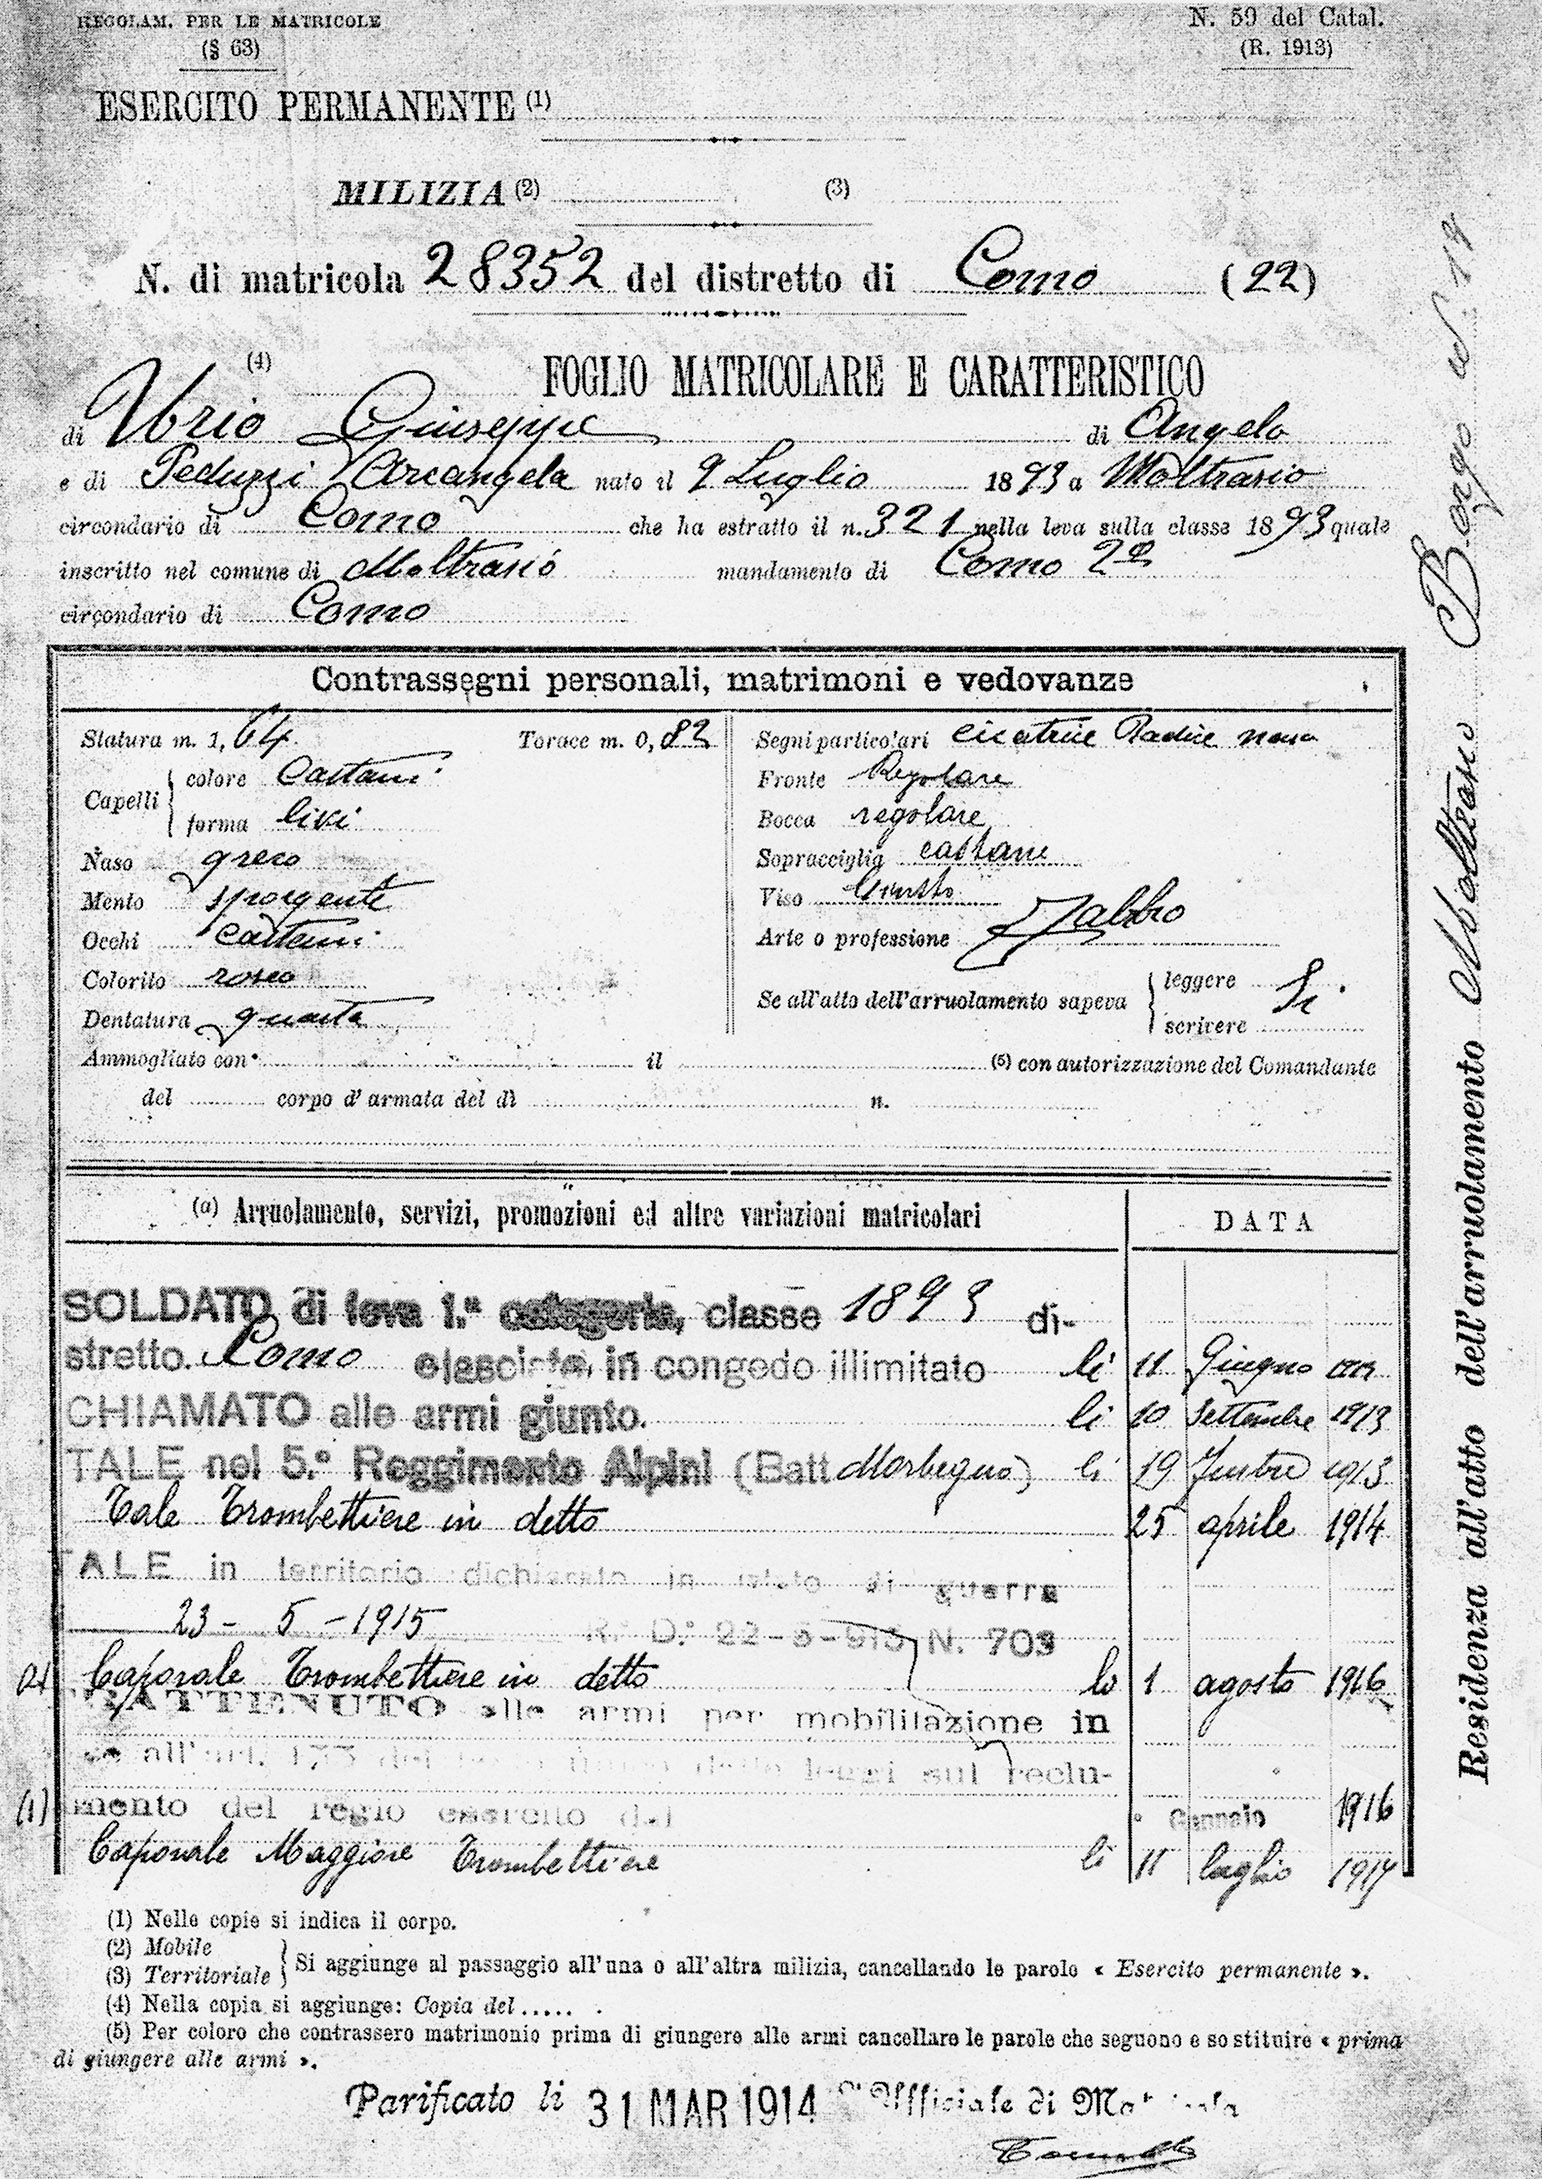 REGOLAM. PER LE MATRICOLE
(§ 63)
N. 59 del Catal.
(R. 1913)
ESERCITO PERMANENTE (1)
MILIZIA (2) (3)
N. di matricola 28352 del distretto di Como (22)
(4) FOGLIO MATRICOLARE E CARATTERISTICO
di Urio Giuseppe di Angelo
e di Peduzzi Arcangela nato il 9 Luglio 1893 a Moltrasio
circondario di Como che ha estratto il n. 321 nella leva sulla classe 1893 quale
inscritto nel comune di Moltrasio mandamento di Como 2º
circondario di Como
Contrassegni personali, matrimoni e vedovanze
Statura m. 1,64 Torace m. 0,82
Capelli { colore Castani
forma lisi
Naso greco
Mento sporgente
Occhi castani
Colorito roseo
Dentatura guasta
Segni particolari cicatrice Radice naso
Fronte Regolare
Bocca regolare
Sopracciglia castane
Viso
Arte o professione Fabbro
Se all'atto dell'arruolamento sapeva { leggere Si
scrivere
Ammogliato con il (5) con autorizzazione del Comandante
del corpo d'armata del dì n.
(a) Arruolamento, servizi, promozioni ed altre variazioni matricolari DATA
SOLDATO di leva 1.ª categoria, classe 1893 di-
stretto Como e lasciato in congedo illimitato li 11 Giugno
CHIAMATO alle armi giunto. li 10 Settembre 1913
TALE nel 5.º Reggimento Alpini (Batt Morbegno) li 19 1913
Tale Trombettiere in detto 25 aprile 1914
TALE in territorio dichiarato in istato di guerra
23 - 5 - 1915 R.º D.º 22-5-915 N. 703
Caporale Trombettiere in detto lo 1 agosto 1916
TRATTENUTO alle armi per mobilitazione in
all'art. 133 delle leggi sul reclu-
(1) mento del regio esercito dal Gennaio 1916
Caporale Maggiore Trombettiere li 11 luglio 1917
(1) Nelle copie si indica il corpo.
(2) Mobile
(3) Territoriale } Si aggiunge al passaggio all'una o all'altra milizia, cancellando le parole « Esercito permanente ».
(4) Nella copia si aggiunge: Copia del .....
(5) Per coloro che contrassero matrimonio prima di giungere alle armi cancellare le parole che seguono e sostituire « prima
di giungere alle armi ».
Parificato li 31 MAR 1914 L'Ufficiale di Matricola
Residenza all'atto dell'arruolamento Moltrasio Borgo N. 14